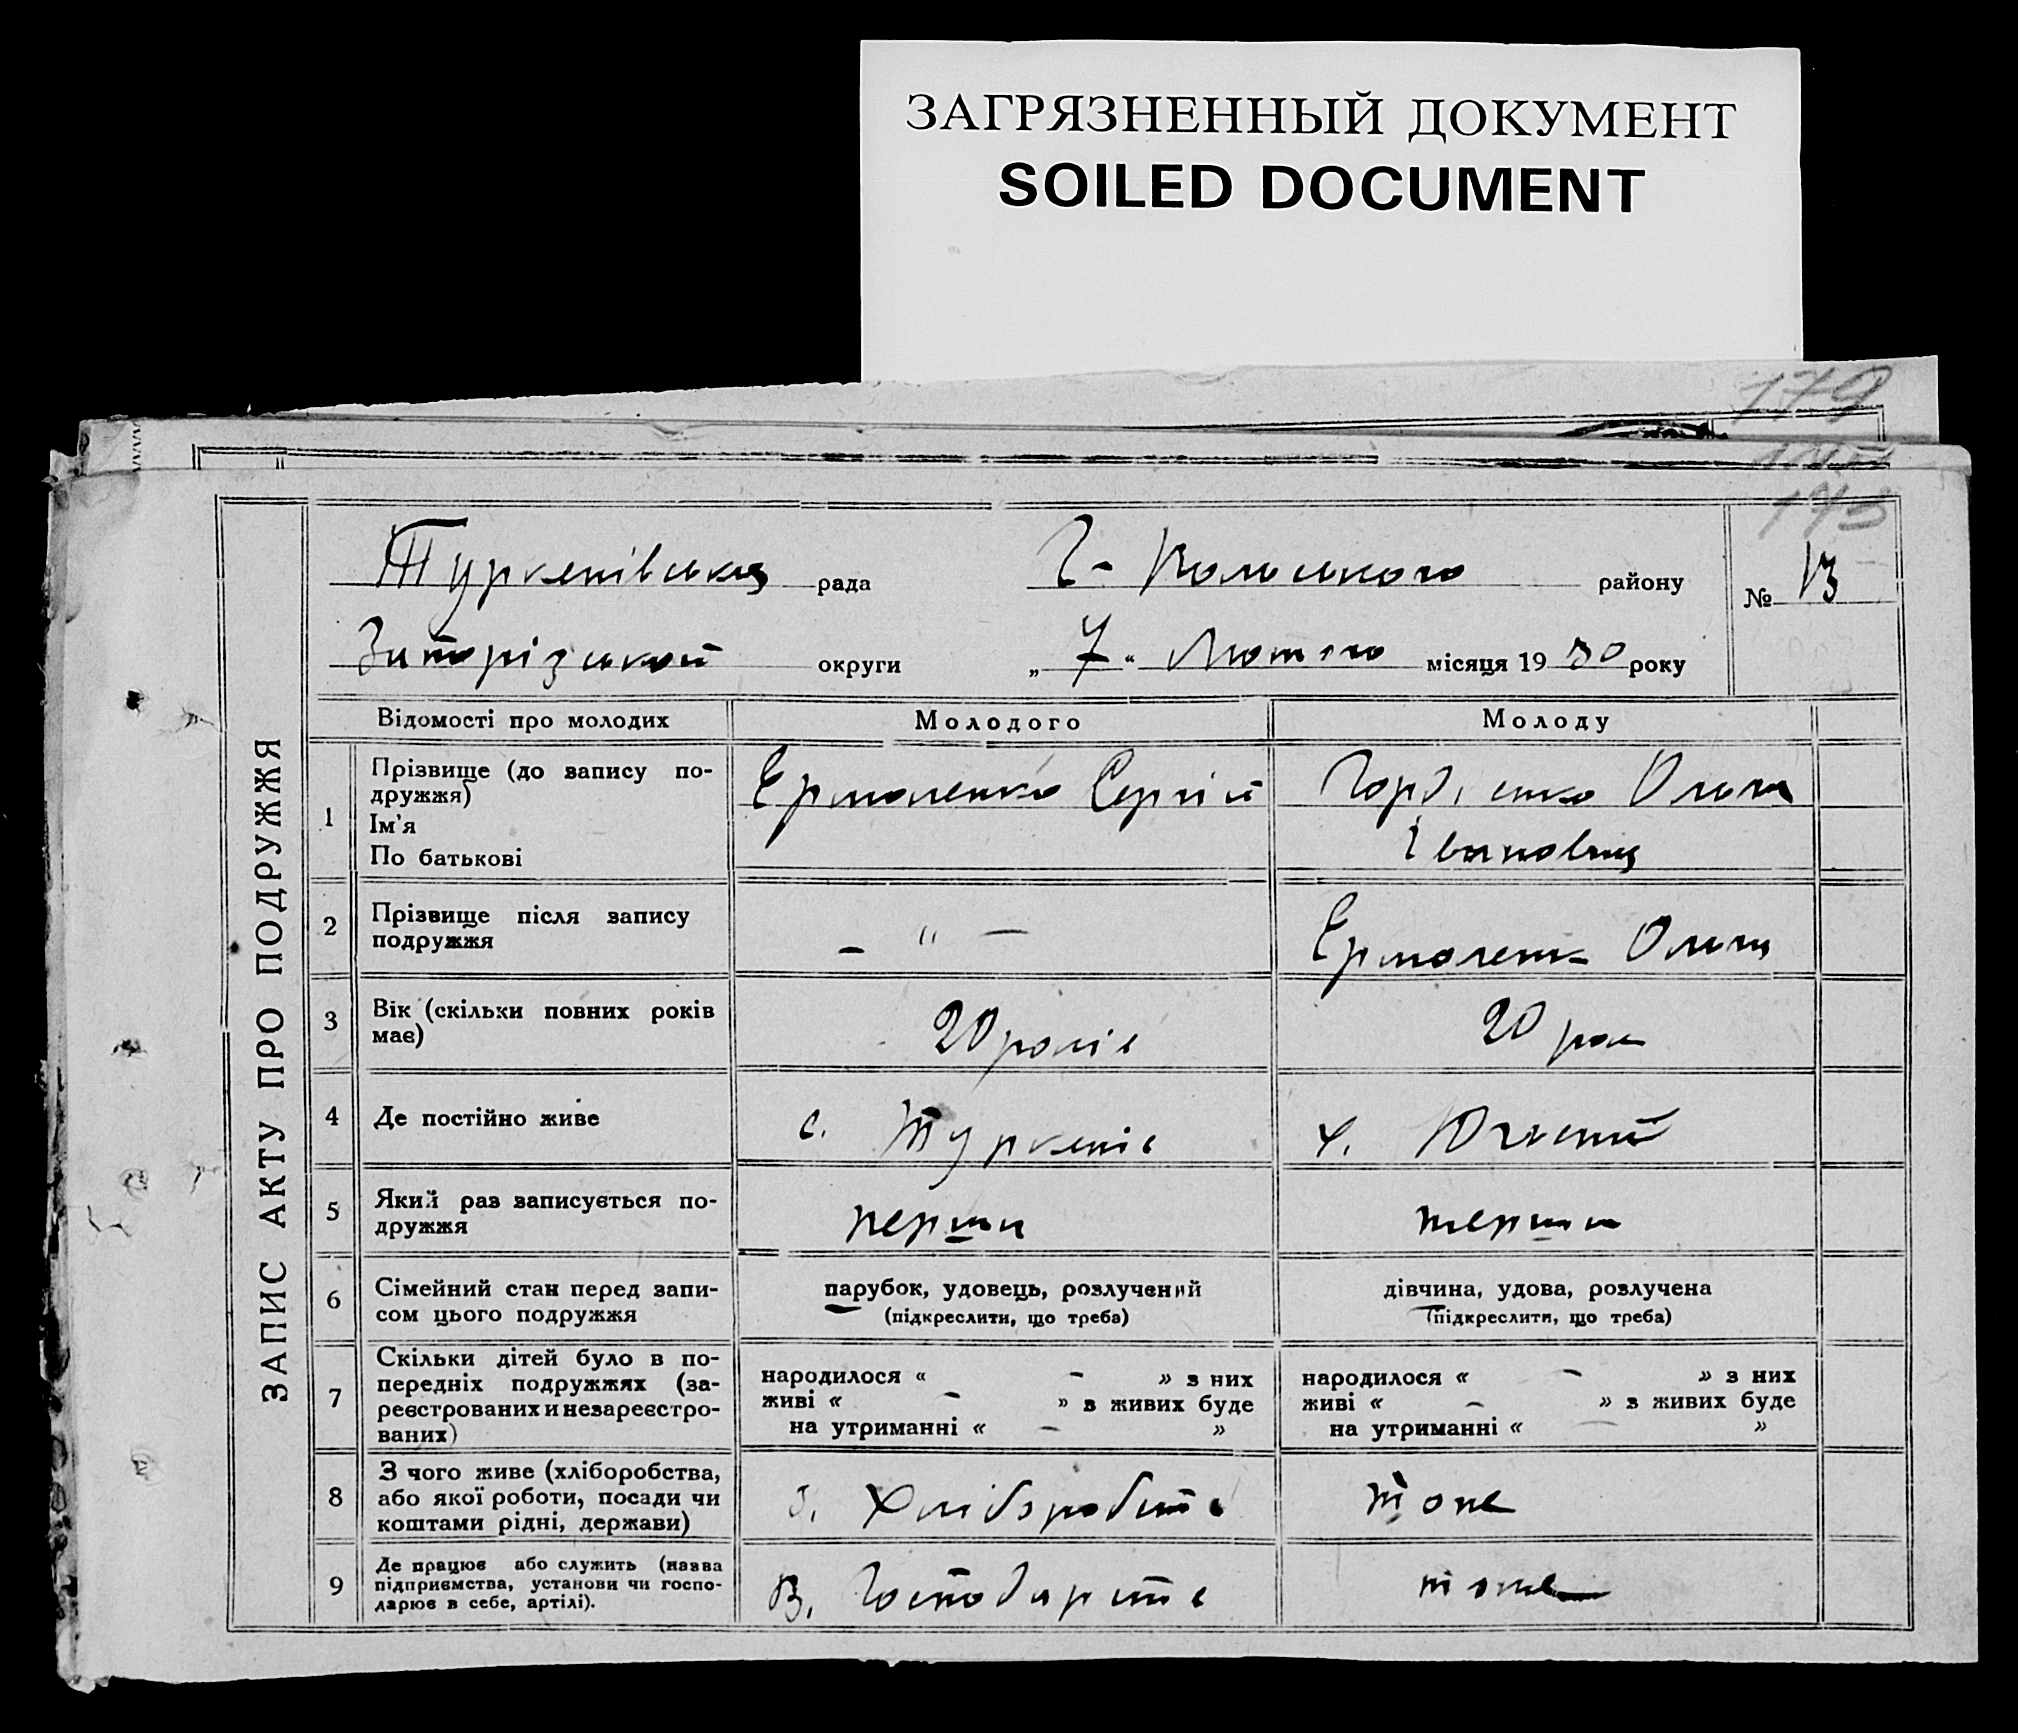 ЗАГРЯЗНЕННЫЙ ДОКУМЕНТ
SOILED DOCUMENT
179
173
ЗАПИС АКТУ ПРО ПОДРУЖЖЯ
Туркенівська рада Г-Польського району № 13
Запорізької округи „ 7 “ Лютого місяця 19 30 року
Відомості про молодих Молодого Молоду
1 Прізвище (до запису по-
дружжя)
Ім'я
По батькові
Ермоленко Сергій
Гордієнко Ольга
Івановна
2 Прізвище після запису
подружжя
– " –
Ермоленко Ольга
3 Вік (скільки повних років
має)
20 років
20 рок
4 Де постійно живе
с. Туркенів
х.
5 Який раз записується по-
дружжя
перши
перши
6 Сімейний стан перед запи-
сом цього подружжя
парубок, удовець, розлучений
(підкреслити, що треба)
дівчина, удова, розлучена
(підкреслити, що треба)
7 Скільки дітей було в по-
передніх подружжях (за-
реєстрованих и незареєстро-
ваних)
народилося « – » з них
живі « – » з живих буде
на утриманні « – »
народилося « – » з них
живі « – » з живих буде
на утриманні « – »
8 З чого живе (хліборобства,
або якої роботи, посади чи
коштами рідні, держави)
з. Хліборобств
тоже
9 Де працює або служить (назва
підприємства, установи чи госпо-
дарює в себе, артілі).
В. Господарств
тоже